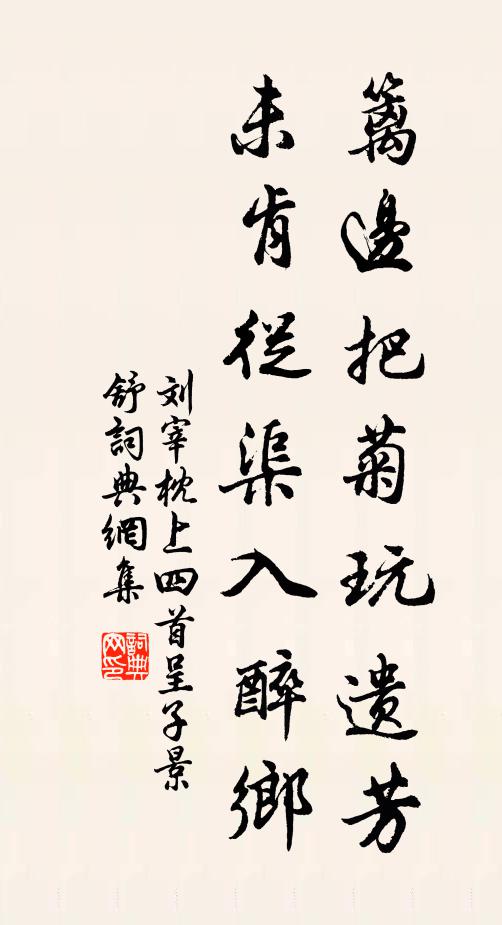 籬邊把菊玩遺芳
未肯從渠入醉鄉
刘宰枕上四首呈子景
舒詞典網集
詞典网印